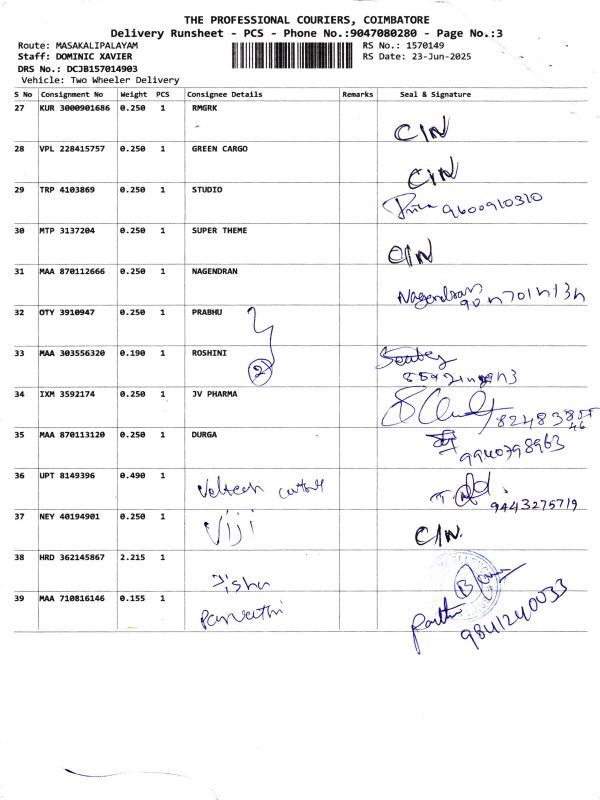 THE PROFESSIONAL COURIERS, COIMBATORE
Delivery Runsheet - PCS - Phone No.:9047080280 - Page No.:3
Route: MASAKALIPALAYAM RS No.: 1570149
Staff: DOMINIC XAVIER RS Date: 23-Jun-2025
DRS No.: DCJB157014903
Vehicle: Two Wheeler Delivery
S No Consignment No Weight PCS Consignee Details Remarks Seal & Signature
27 KUR 3000901686 0.250 1 RMGRK
CIN
28 VPL 228415757 0.250 1 GREEN CARGO
CIN
29 TRP 4103869 0.250 1 STUDIO
9600910310
30 MTP 3137204 0.250 1 SUPER THEME
CIN
31 MAA 870112666 0.250 1 NAGENDRAN
Nagendran
32 OTY 3910947 0.250 1 PRABHU
33 MAA 303556320 0.190 1 ROSHINI
2
34 IXM 3592174 0.250 1 JV PHARMA
35 MAA 870113120 0.250 1 DURGA
9940798963
36 UPT 8149396 0.490 1
9443275719
37 NEY 40194901 0.250 1 Viji CIN
38 HRD 362145867 2.215 1
39 MAA 710816146 0.155 1 Parvathi
9841240033